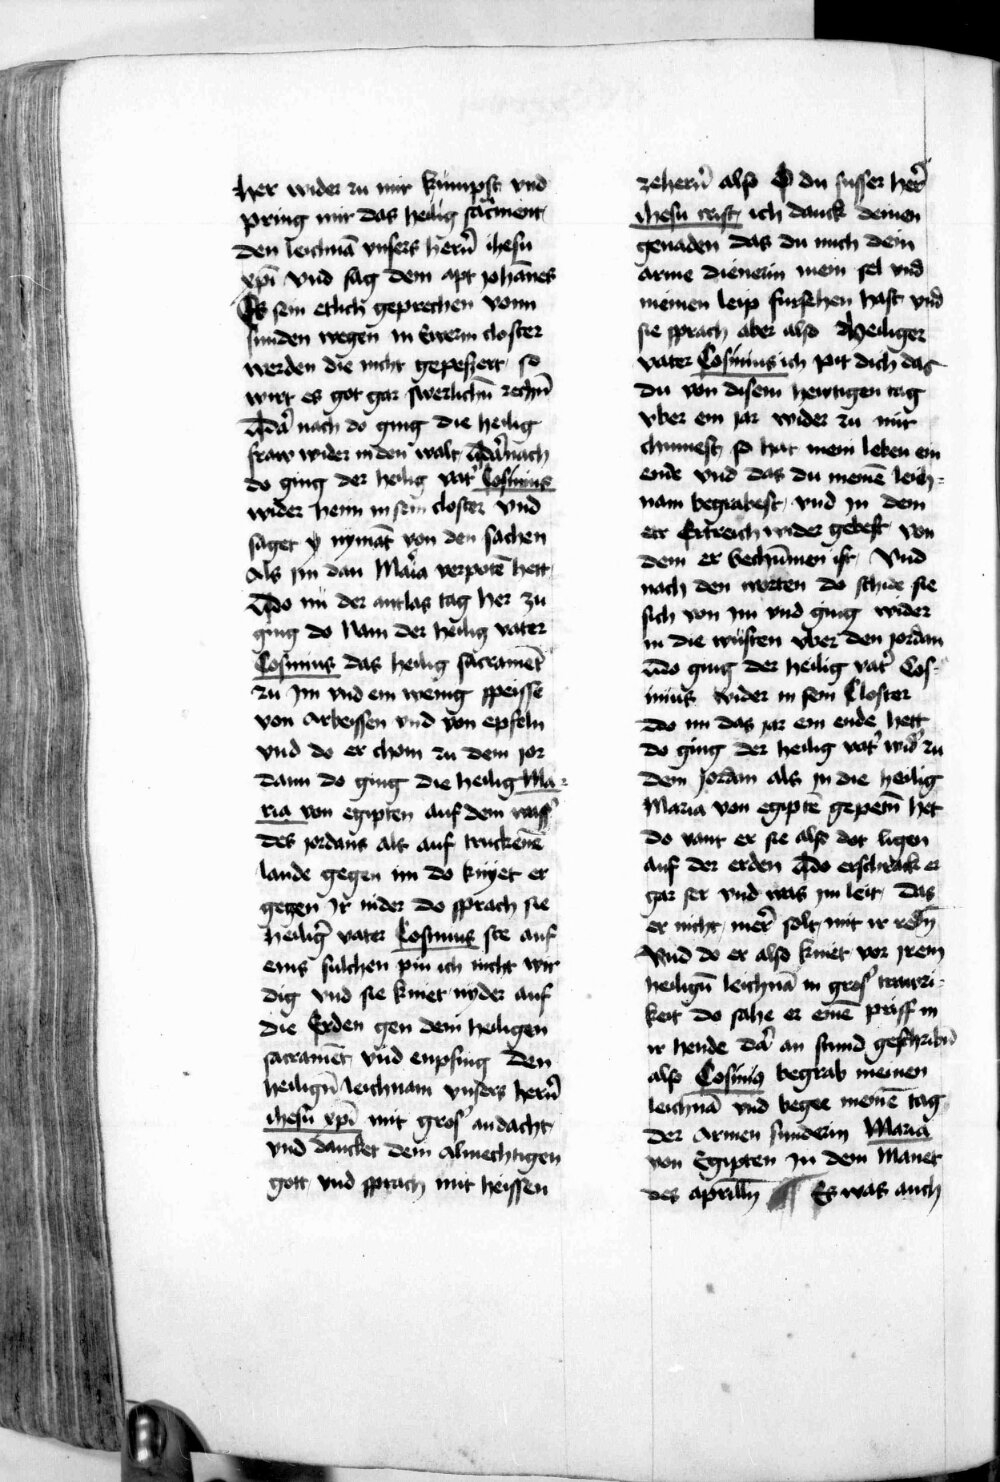 her wider zu mir kumpst vnd
pring mir das heilig sacment
den leichnā vnsers herrn̄ ihesu
xpī vnd sag dem apt Johānes
Es sein etlich geprechen vonn
sunden wegen in Ewerm closter
werden die nicht gepessert so
wirt es got gar swerlichn̄ rechn̄
Dar nach do ging die heilig
fraw wider in den walt Darnach
do ging der heilig vat' Cosimius
wider heim in sein closter vnd
saget nymāt von den sachen
Als Im dan Maria verpotē hett
Do nu der antlas tag her zu
ging do Nam der heilig vater
Cosimius das heilig sacramēt
zu Im vnd ein wenig speisse
von Arbeissen vnd von epfeln
vnd do er chom zu dem Jor
dann do ging die heilig Ma-
ria von egipten auf dem wass'
des Jordans als auf truckenē
lande gegen im do knyet er
gegen Ir nider do sprach sie
heilig' vater Cosimius ste auf
eins sulchen pin ich nicht wir
dig vnd sie kniet nyder auf
die Erden gen dem heiligen
sacramēt vnd enpfing den
heilign̄ leichnam vnsers herrn̄
ihesu xpī mit gros' andacht
vnd dancket dem Almechtigen
gott vnd sprach mit heissen
zehern̄ also O du susser her'
ihesu crist ich danck deinen
genaden das du mich dein
arme dienerin mein sel vnd
meinen leip fursehen hast vnd
sie sprach aber also Heiliger
vater Cosimius ich pit dich das
du von disem hewtigen tag
vber ein Jar wider zu mir
chumest so hat mein leben ein
ende vnd das du meinē leich-
nam begrabest vnd In dem
er Ertreich wider gebest von
dem er bechūmen ist Vnd
nach den worten do schide sie
sich von Im vnd ging wider
in die wusten vber den Jordan
Do ging der heilig vat' Cos-
imius wider in sein Closter
Do nu das Jar ein ende hett
do ging der heilig vat' wid' zu
dem Jordan als In die heilig
Maria von egiptē gepetn̄ het
do vant er sie also dot ligen
auf der erden Do erschrack er
gar ser vnd was Im leit das
er nicht mer solt mit ir redn̄
Vnd do er also kniet vor Irem
heilign̄ leichnā in gros' trawri-
keit do sahe er einē priff in
ir hende dar an stund geschribn̄
also Cosimi' begrab meinen
leichnā vnd begee meinē tag
der Armen sunderin Maria
von Egipten In dem Manet
des aprilln̄ Es was auch